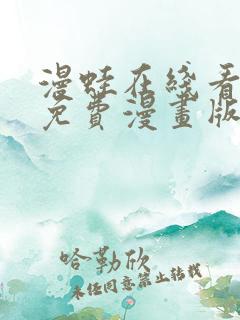 漫蛙在綫看
免費漫畫版
哈勒欣
未经同意禁止转载